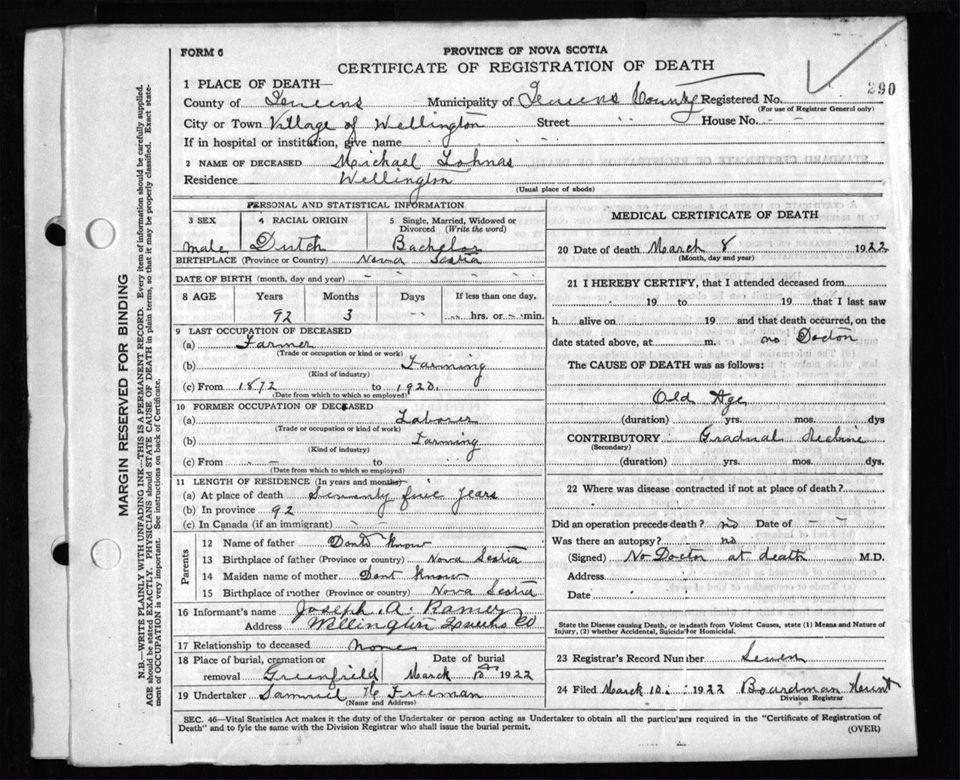 FORM 6
PROVINCE OF NOVA SCOTIA
CERTIFICATE OF REGISTRATION OF DEATH
290
1 PLACE OF DEATH—
County of Queens Municipality of Queens County Registered No.
(For use of Registrar General only)
City or Town Village of Wellington Street House No. - -
If in hospital or institution, give name
2 NAME OF DECEASED Michael Lohnas
Residence Wellington
(Usual place of abode)
PERSONAL AND STATISTICAL INFORMATION
3 SEX 4 RACIAL ORIGIN 5 Single, Married, Widowed or Divorced (Write the word)
male Dutch Bachelor
BIRTHPLACE (Province or Country) Nova Scotia
DATE OF BIRTH (month, day and year) - - -
8 AGE Years Months Days If less than one day,
92 3 -- hrs. or min.
9 LAST OCCUPATION OF DECEASED
(a) Farmer
(Trade or occupation or kind or work)
(b) Farming
(Kind of industry)
(c) From 1872 to 1920.
(Date from which to which so employed)
10 FORMER OCCUPATION OF DECEASED
(a) Laborer
(Trade or occupation or kind of work)
(b) Farming
(Kind of industry)
(c) From - - to
(Date from which to which so employed)
11 LENGTH OF RESIDENCE (In years and months)
(a) At place of death Seventy five years
(b) In province 92
(c) In Canada (if an immigrant) - -
Parents
12 Name of father Dont know
13 Birthplace of father (Province or country) Nova Scotia
14 Maiden name of mother Dont Know
15 Birthplace of mother (Province or country) Nova Scotia
16 Informant's name Joseph A. Ramey
Address Wellington Queens Co
17 Relationship to deceased none
18 Place of burial, cremation or removal Greenfield
Date of burial March 10 1922
19 Undertaker Samuel H Freeman
(Name and Address)
MEDICAL CERTIFICATE OF DEATH
20 Date of death March 8 1922
(Month, day and year)
21 I HEREBY CERTIFY, that I attended deceased from
19 to 19 that I last saw
h alive on 19 and that death occurred, on the
date stated above, at m. no Doctor
The CAUSE OF DEATH was as follows:
Old Age
(duration) yrs. mos. dys
CONTRIBUTORY Gradual decline
(Secondary)
(duration) yrs. mos. dys.
22 Where was disease contracted if not at place of death?
Did an operation precede death? no Date of - -
Was there an autopsy? no
(Signed) No Doctor at death M.D.
Address
Date
State the Disease causing Death, or in death from Violent Causes, state (1) Means and Nature of
Injury, (2) whether Accidental, Suicidal or Homicidal.
23 Registrar's Record Number Seven
24 Filed March 10 1922 Boardman Hunt
Division Registrar
SEC. 46—Vital Statistics Act makes it the duty of the Undertaker or person acting as Undertaker to obtain all the particulars required in the "Certificate of Registration of
Death" and to fyle the same with the Division Registrar who shall issue the burial permit.
(OVER)
MARGIN RESERVED FOR BINDING
N.B.—WRITE PLAINLY WITH UNFADING INK—THIS IS A PERMANENT RECORD. Every item of information should be carefully supplied.
AGE should be stated EXACTLY. PHYSICIANS should STATE CAUSE OF DEATH in plain terms, so that it may be properly classified. Exact statement of OCCUPATION is very important. See instructions on back of Certificate.